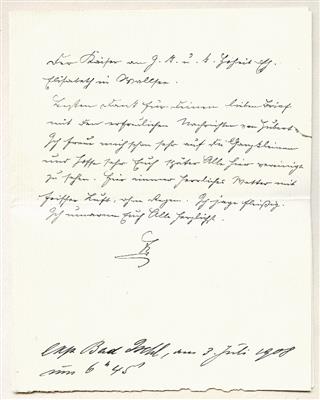 Der Kaiser an I. K. u. k. Hoheit Eh.
Elisabeth in Wallsee.
Besten Dank für Deinen lieben Brief
mit den erfreulichen Nachrichten von Hubert.
Ich freue mich schon sehr auf die Ganzkleinen
und hoffe sehr Euch später Alle hier vereinigt
zu sehen. Hier immer herrliches Wetter mit
frischer Luft, ohne Regen. Ich jage fleißig.
Ich umarme Euch Alle herzlichst.
exp. Bad Ischl, am 3. Juli 1908
um 6 h 45'